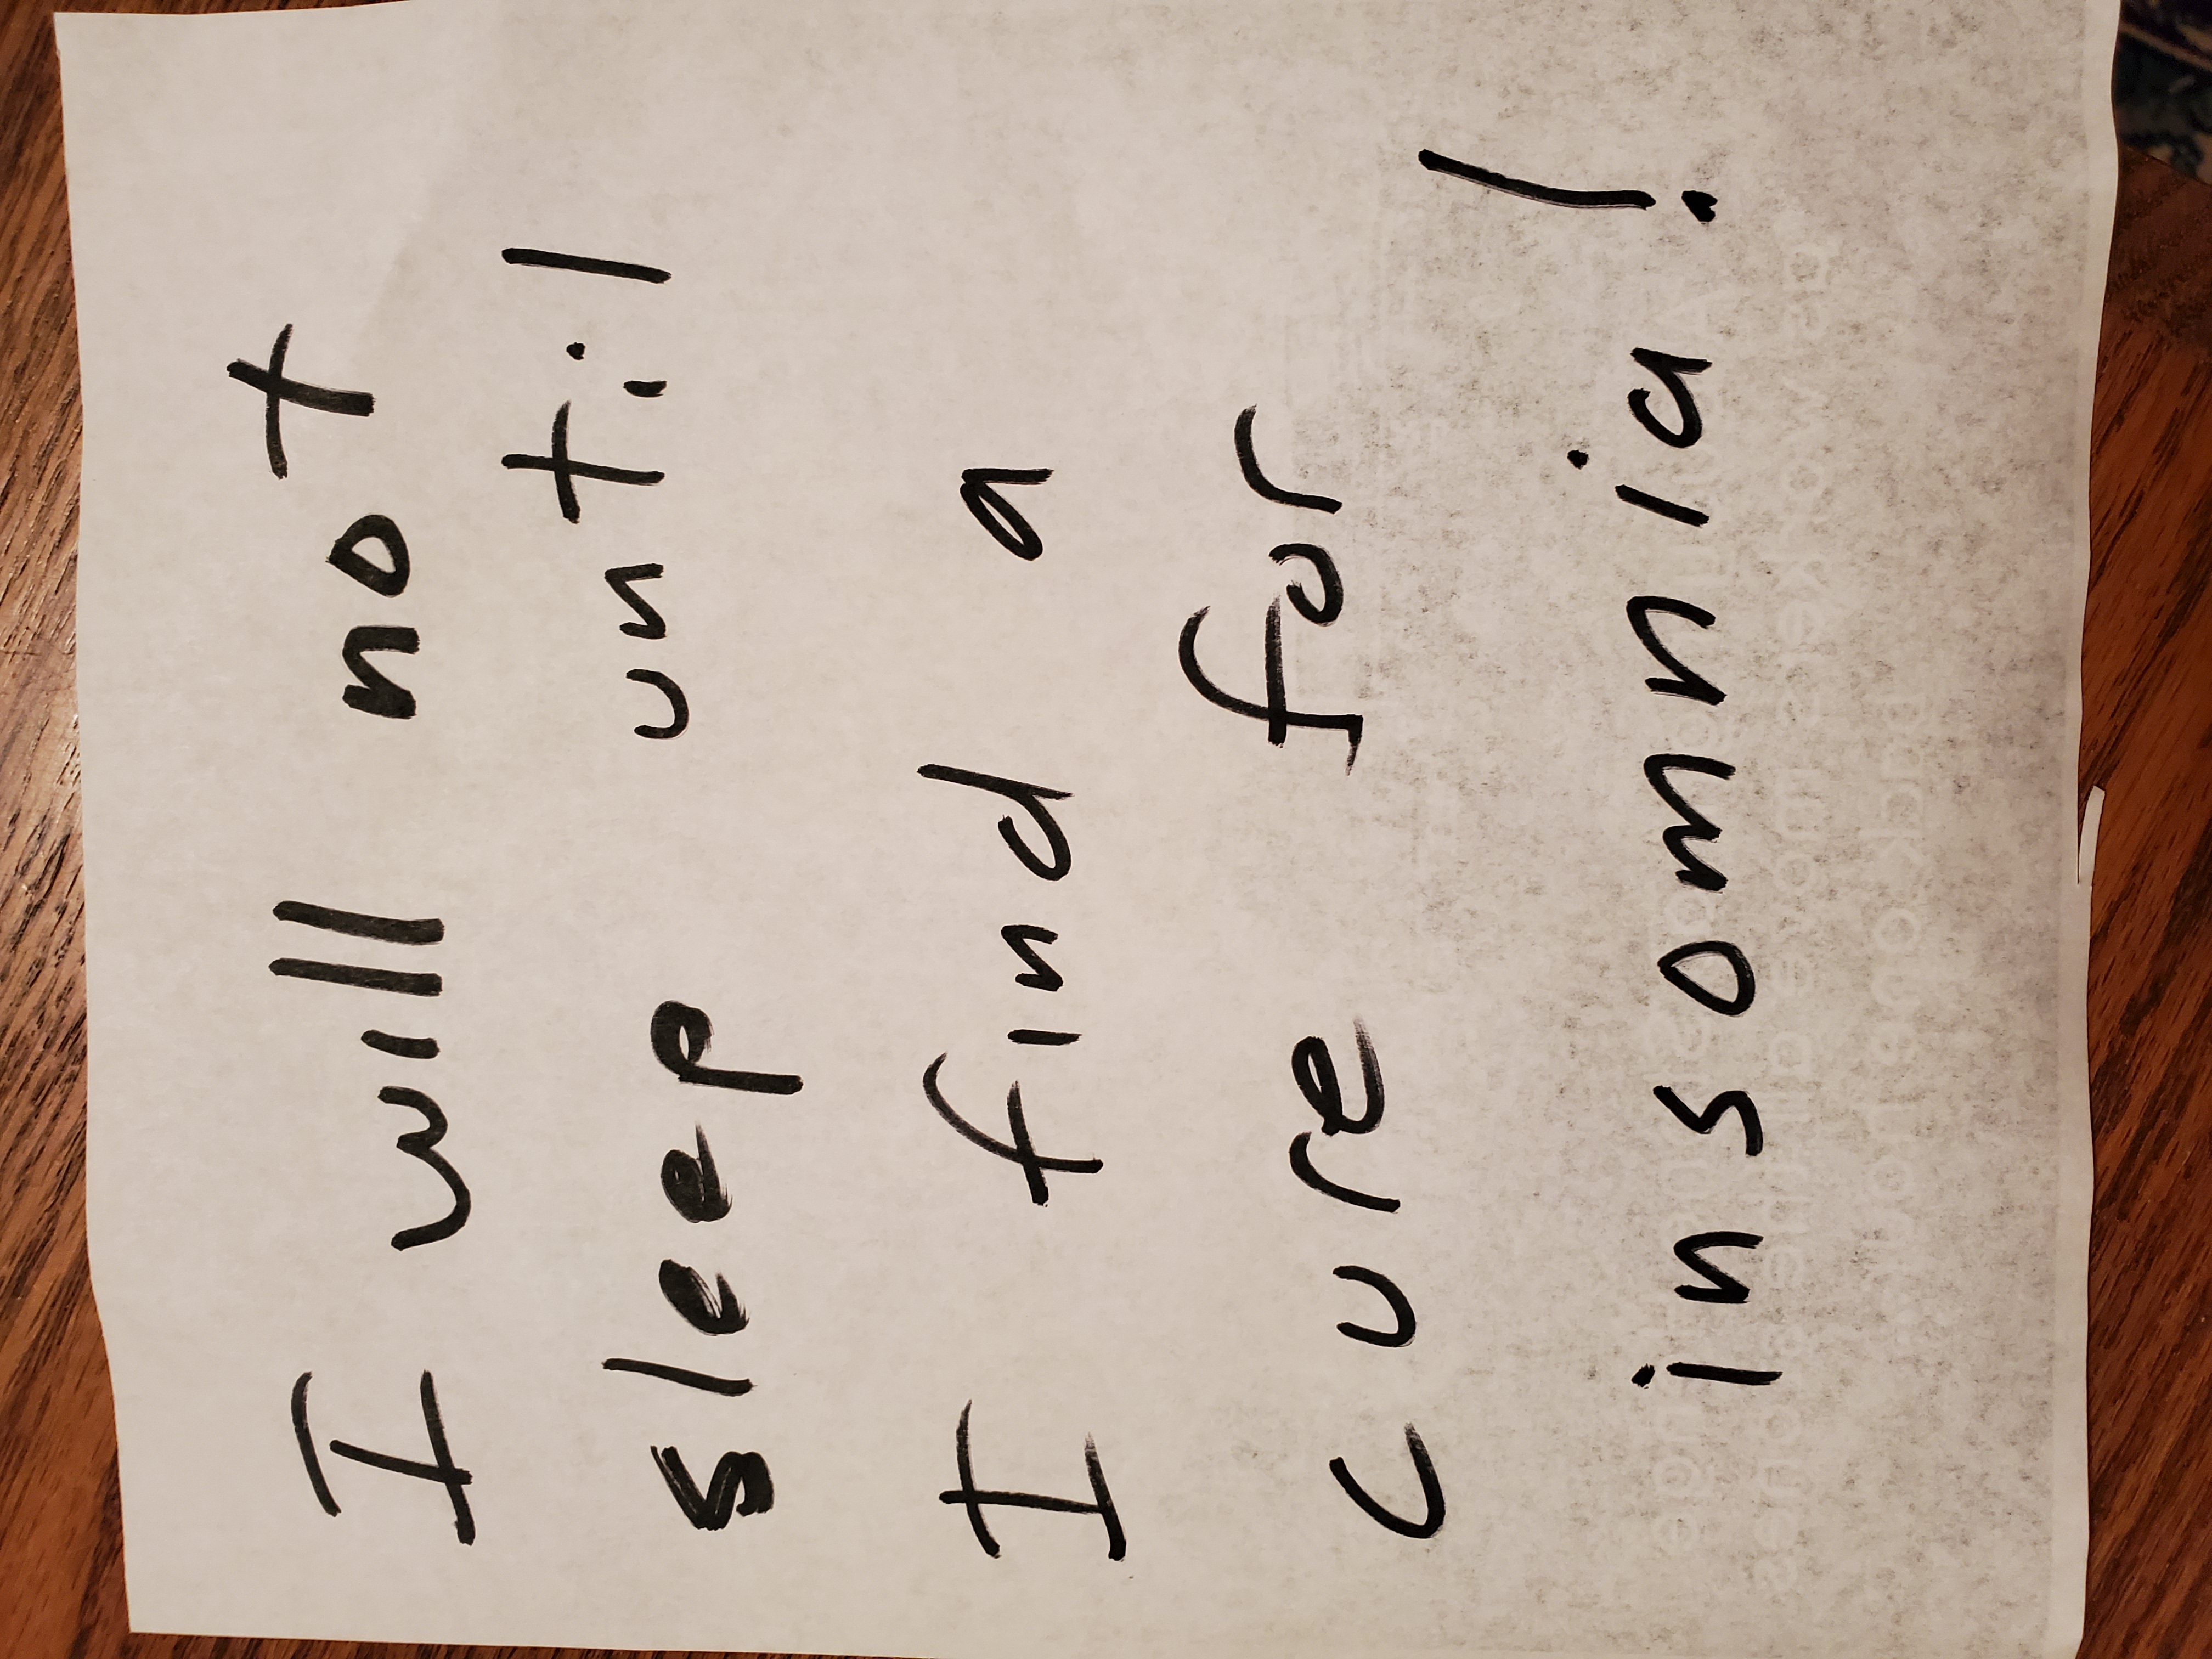 I will not
sleep until
I find a
cure for
insomnia!